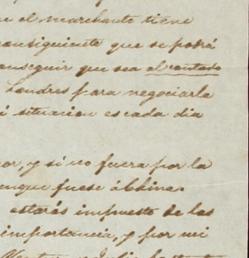 el marchante tiene
consiguiente que se podrá
conseguir que sea al contado
Londres para negociarla
situacion es cada dia
or, y si no fuera por la
unque fuese ábhina.
estarás impuesto de las
importancia, y por mi